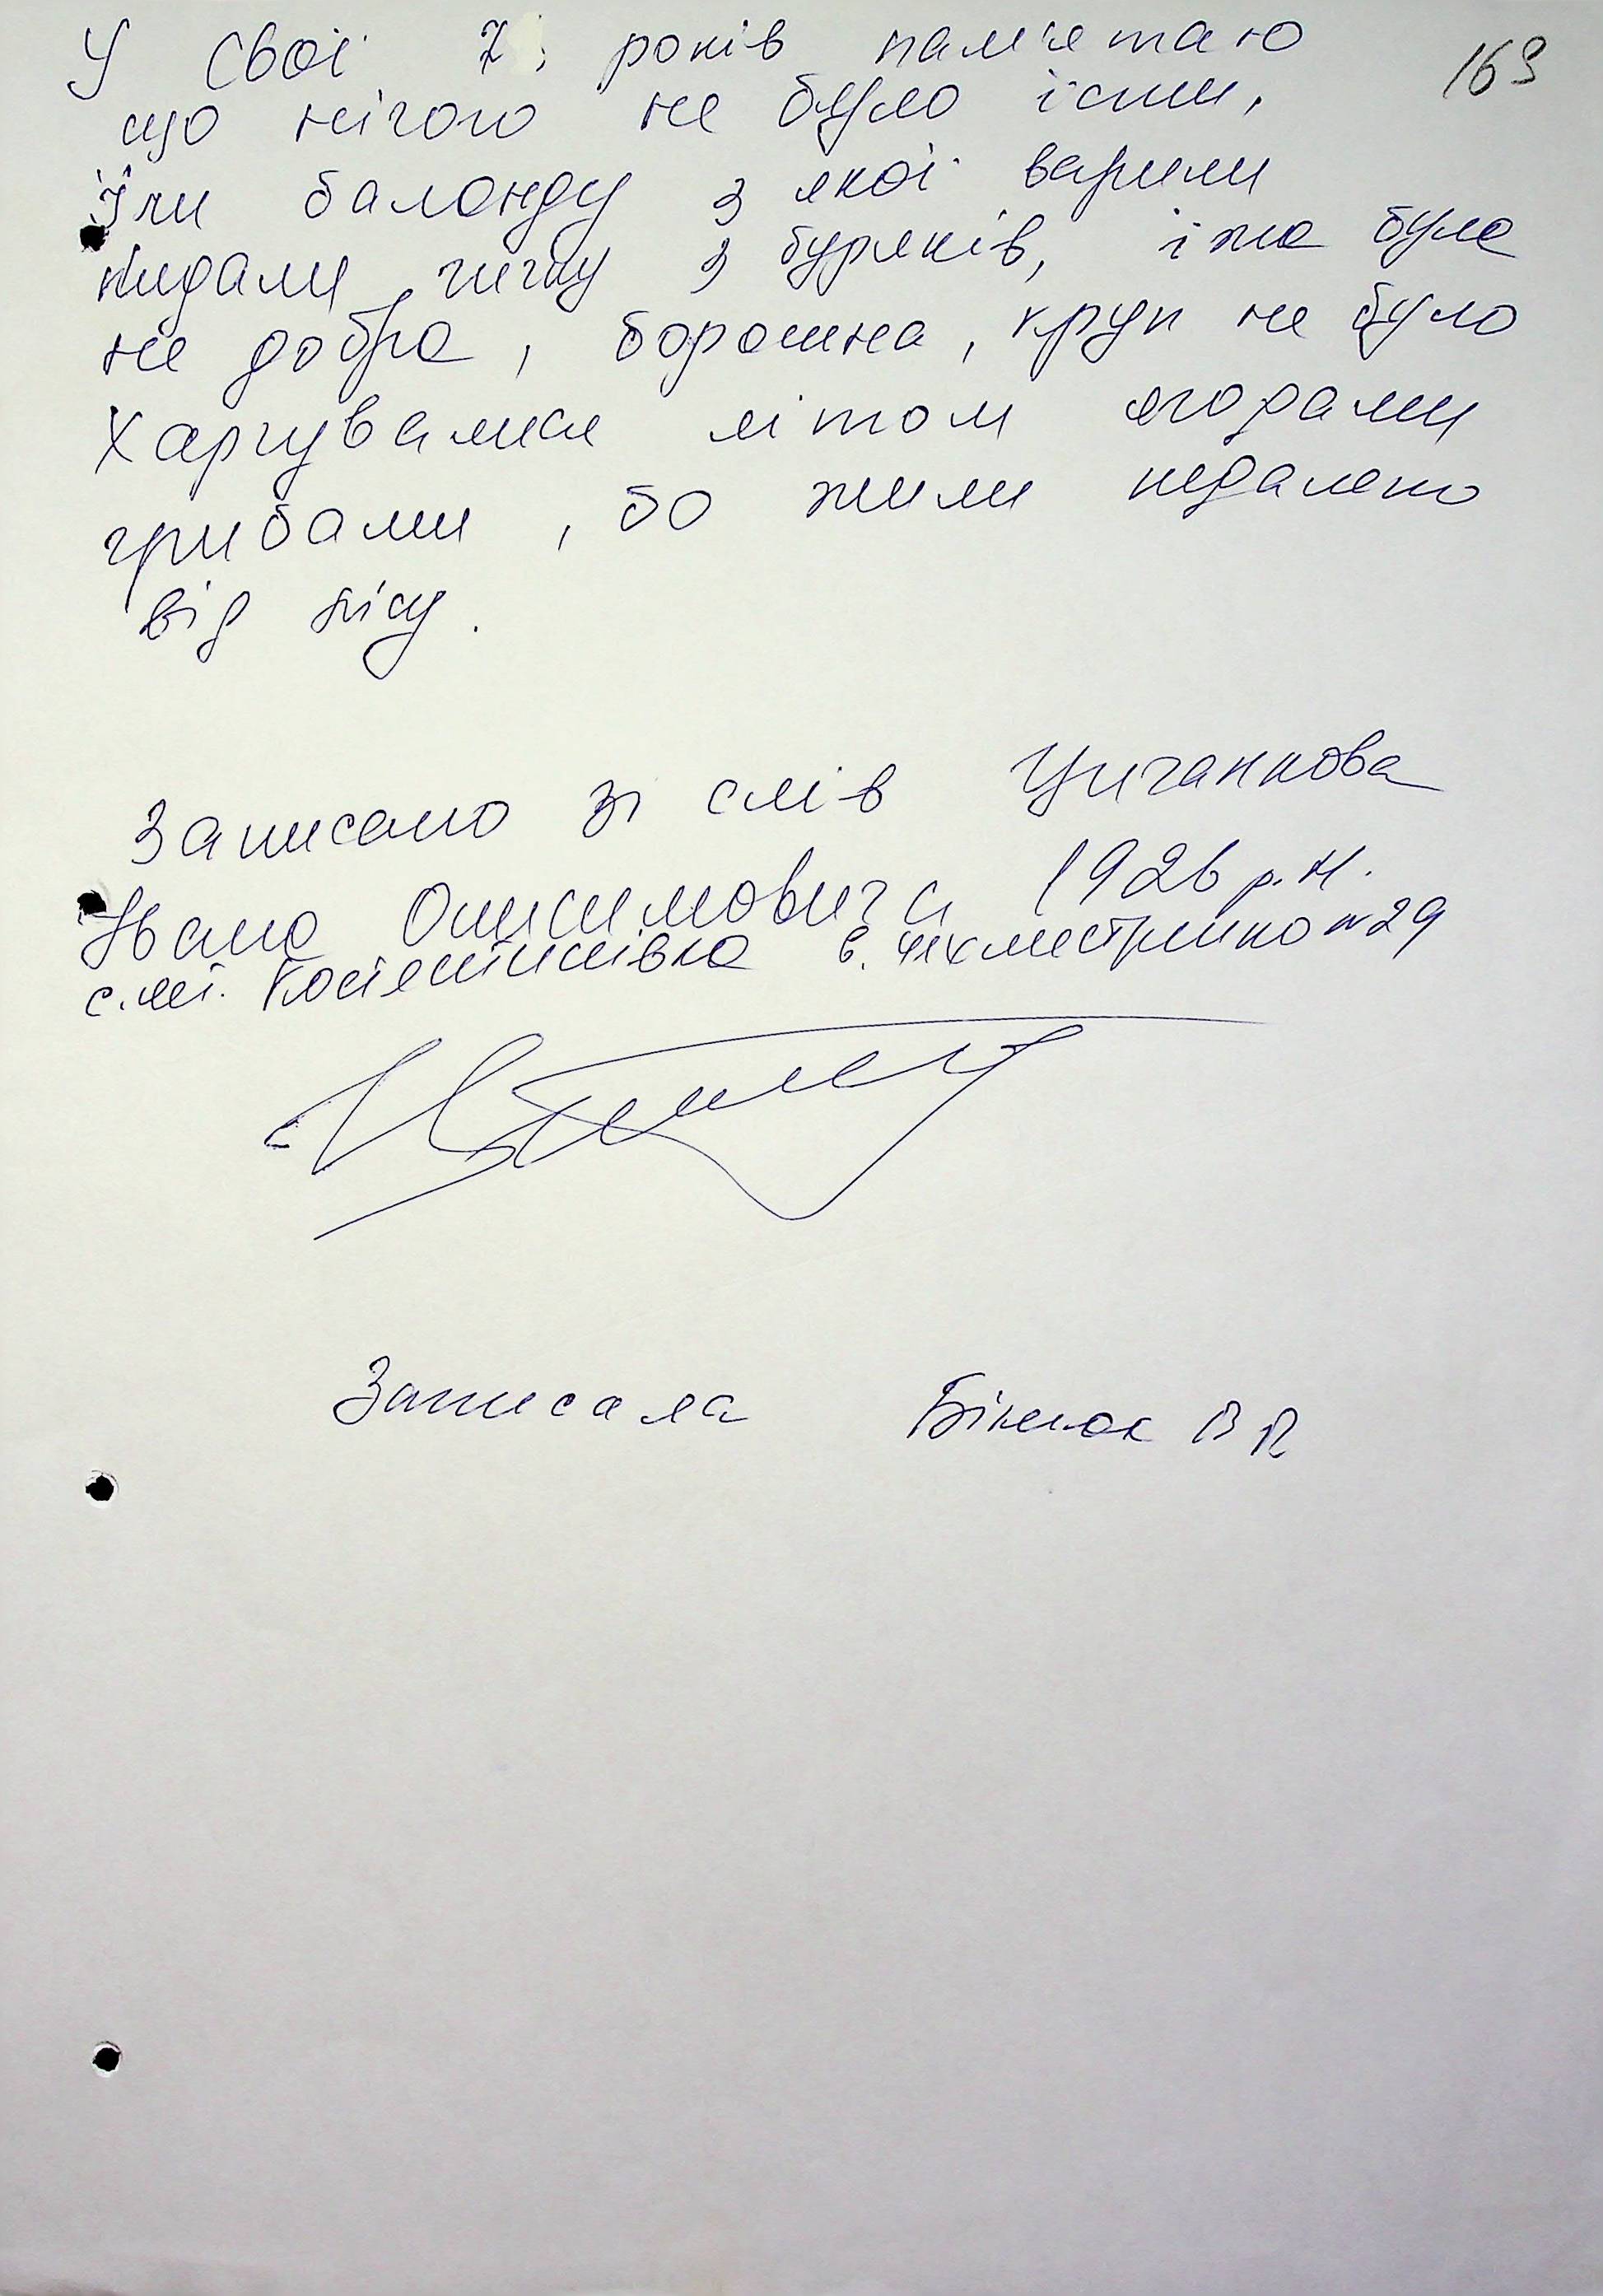 У свої 7 років пам'ятаю
163
що нічого не було їсти,
Їли баланду з якої варили
кидали гичку з буряків, їжа була
не добра, борошна, круп не було
Харчувалися літом ягодами
грибами, бо жили недалеко
від лісу.
Записано зі слів Циганкова
Івана Онисимовича 1926 р.н.
с.мт. в. №29
Записала Бінюк В П